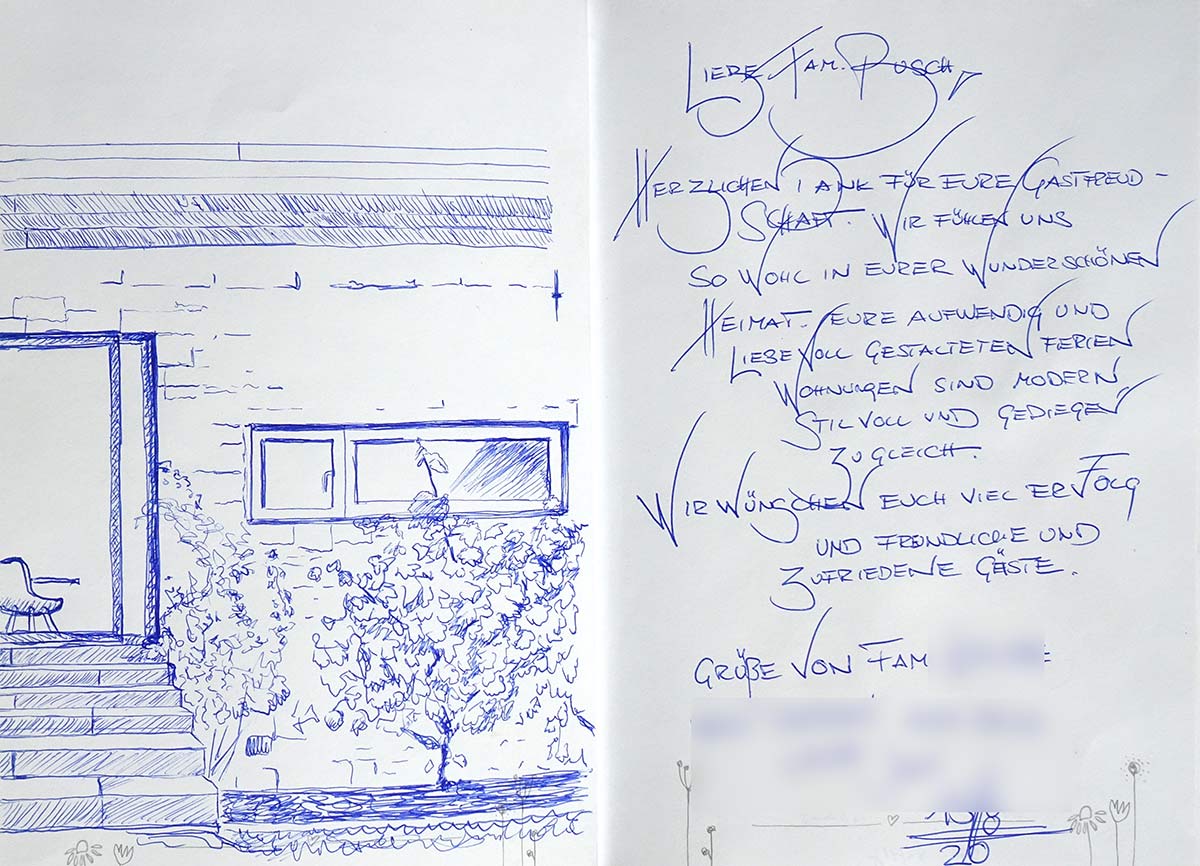 LIEBE FAM. BUSCH,
HERZLICHEN DANK FÜR EURE GASTFREUD-
SCHAFT. WIR FÜHLEN UNS
SO WOHL IN EURER WUNDERSCHÖNEN
HEIMAT. EURE AUFWENDIG UND
LIEBEVOLL GESTALTETEN FERIEN
WOHNUNGEN SIND MODERN
STILVOLL UND GEDIEGEN
ZUGLEICH.
WIR WÜNSCHEN EUCH VIEL ERFOLG
UND FREUNDLICHE UND
ZUFRIEDENE GÄSTE.
GRÜßE VON FAM
20